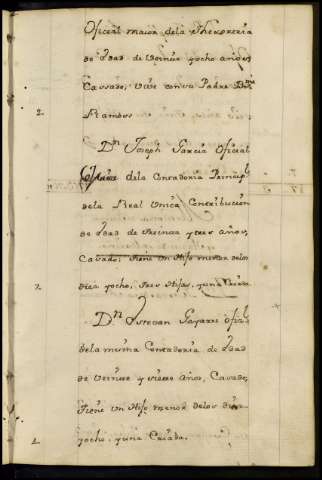 Oficial maior dela Thesoreria
de Edad de Veinte yocho años,
Cassado, Vive con su Padre Dn
2 Ramos
Dn. Joseph Garcia Oficial
dela Contaduria Prinzipl
dela Real Unica Contribucion
de Edad de treinta y tres años,
Casado, tiene un Hijo menor delos
2 diez yocho, tres Hijas, y una Criada
Dn. Estevan Payarre ofizl
dela misma Contaduria de Edad
de Veinte y siete años, Casado,
tiene un Hijo menor delos diez
1 yocho y una Criada.